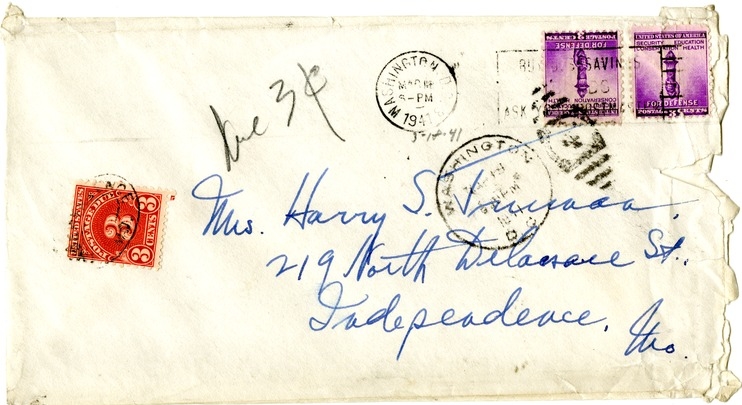 WASHINGTON, D.C.
6-PM
1941
BUY SAVINGS
ASK POSTMASTER
POSTAGE 3 CENTS
FOR DEFENSE
UNITED STATES OF AMERICA
SECURITY EDUCATION
CONSERVATION HEALTH
FOR DEFENSE
Due 3¢
3-18-41
WASHINGTON
D.C.
UNITED STATES
POSTAGE DUE
3 3 3
CENTS
Mrs. Harry S. Truman,
219 North Delaware St.,
Independence,
Mo.